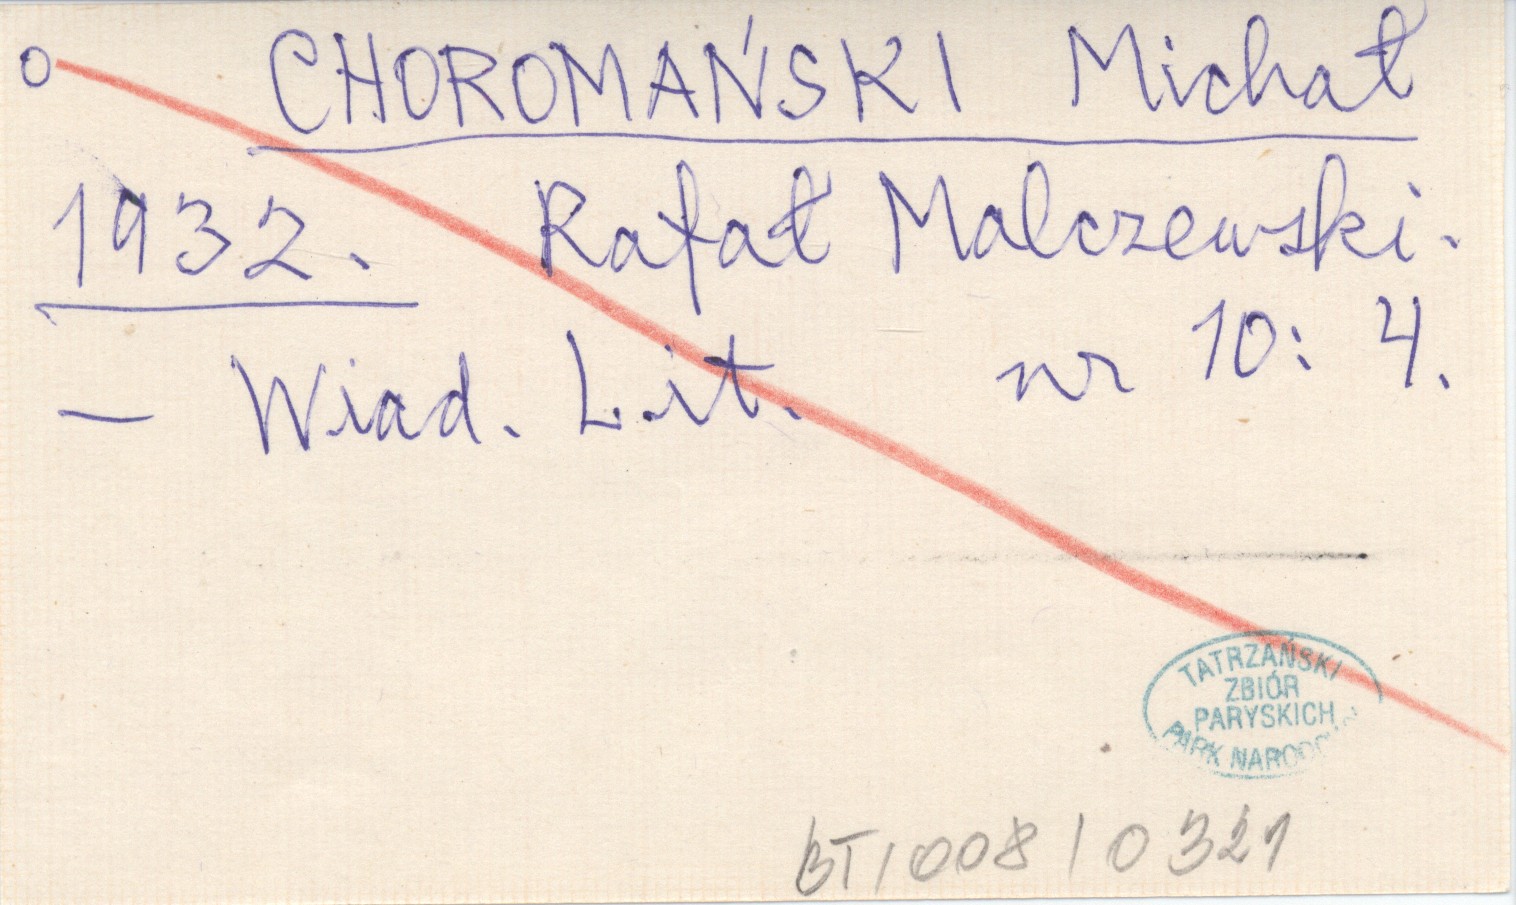 O CHOROMAŃSKI Michał
1932. Rafał Malczewski.
— Wiad. Lit. nr 10: 4.
TATRZAŃSKI
ZBIÓR
PARYSKICH
PARK NARODOWY
BT/008/0321